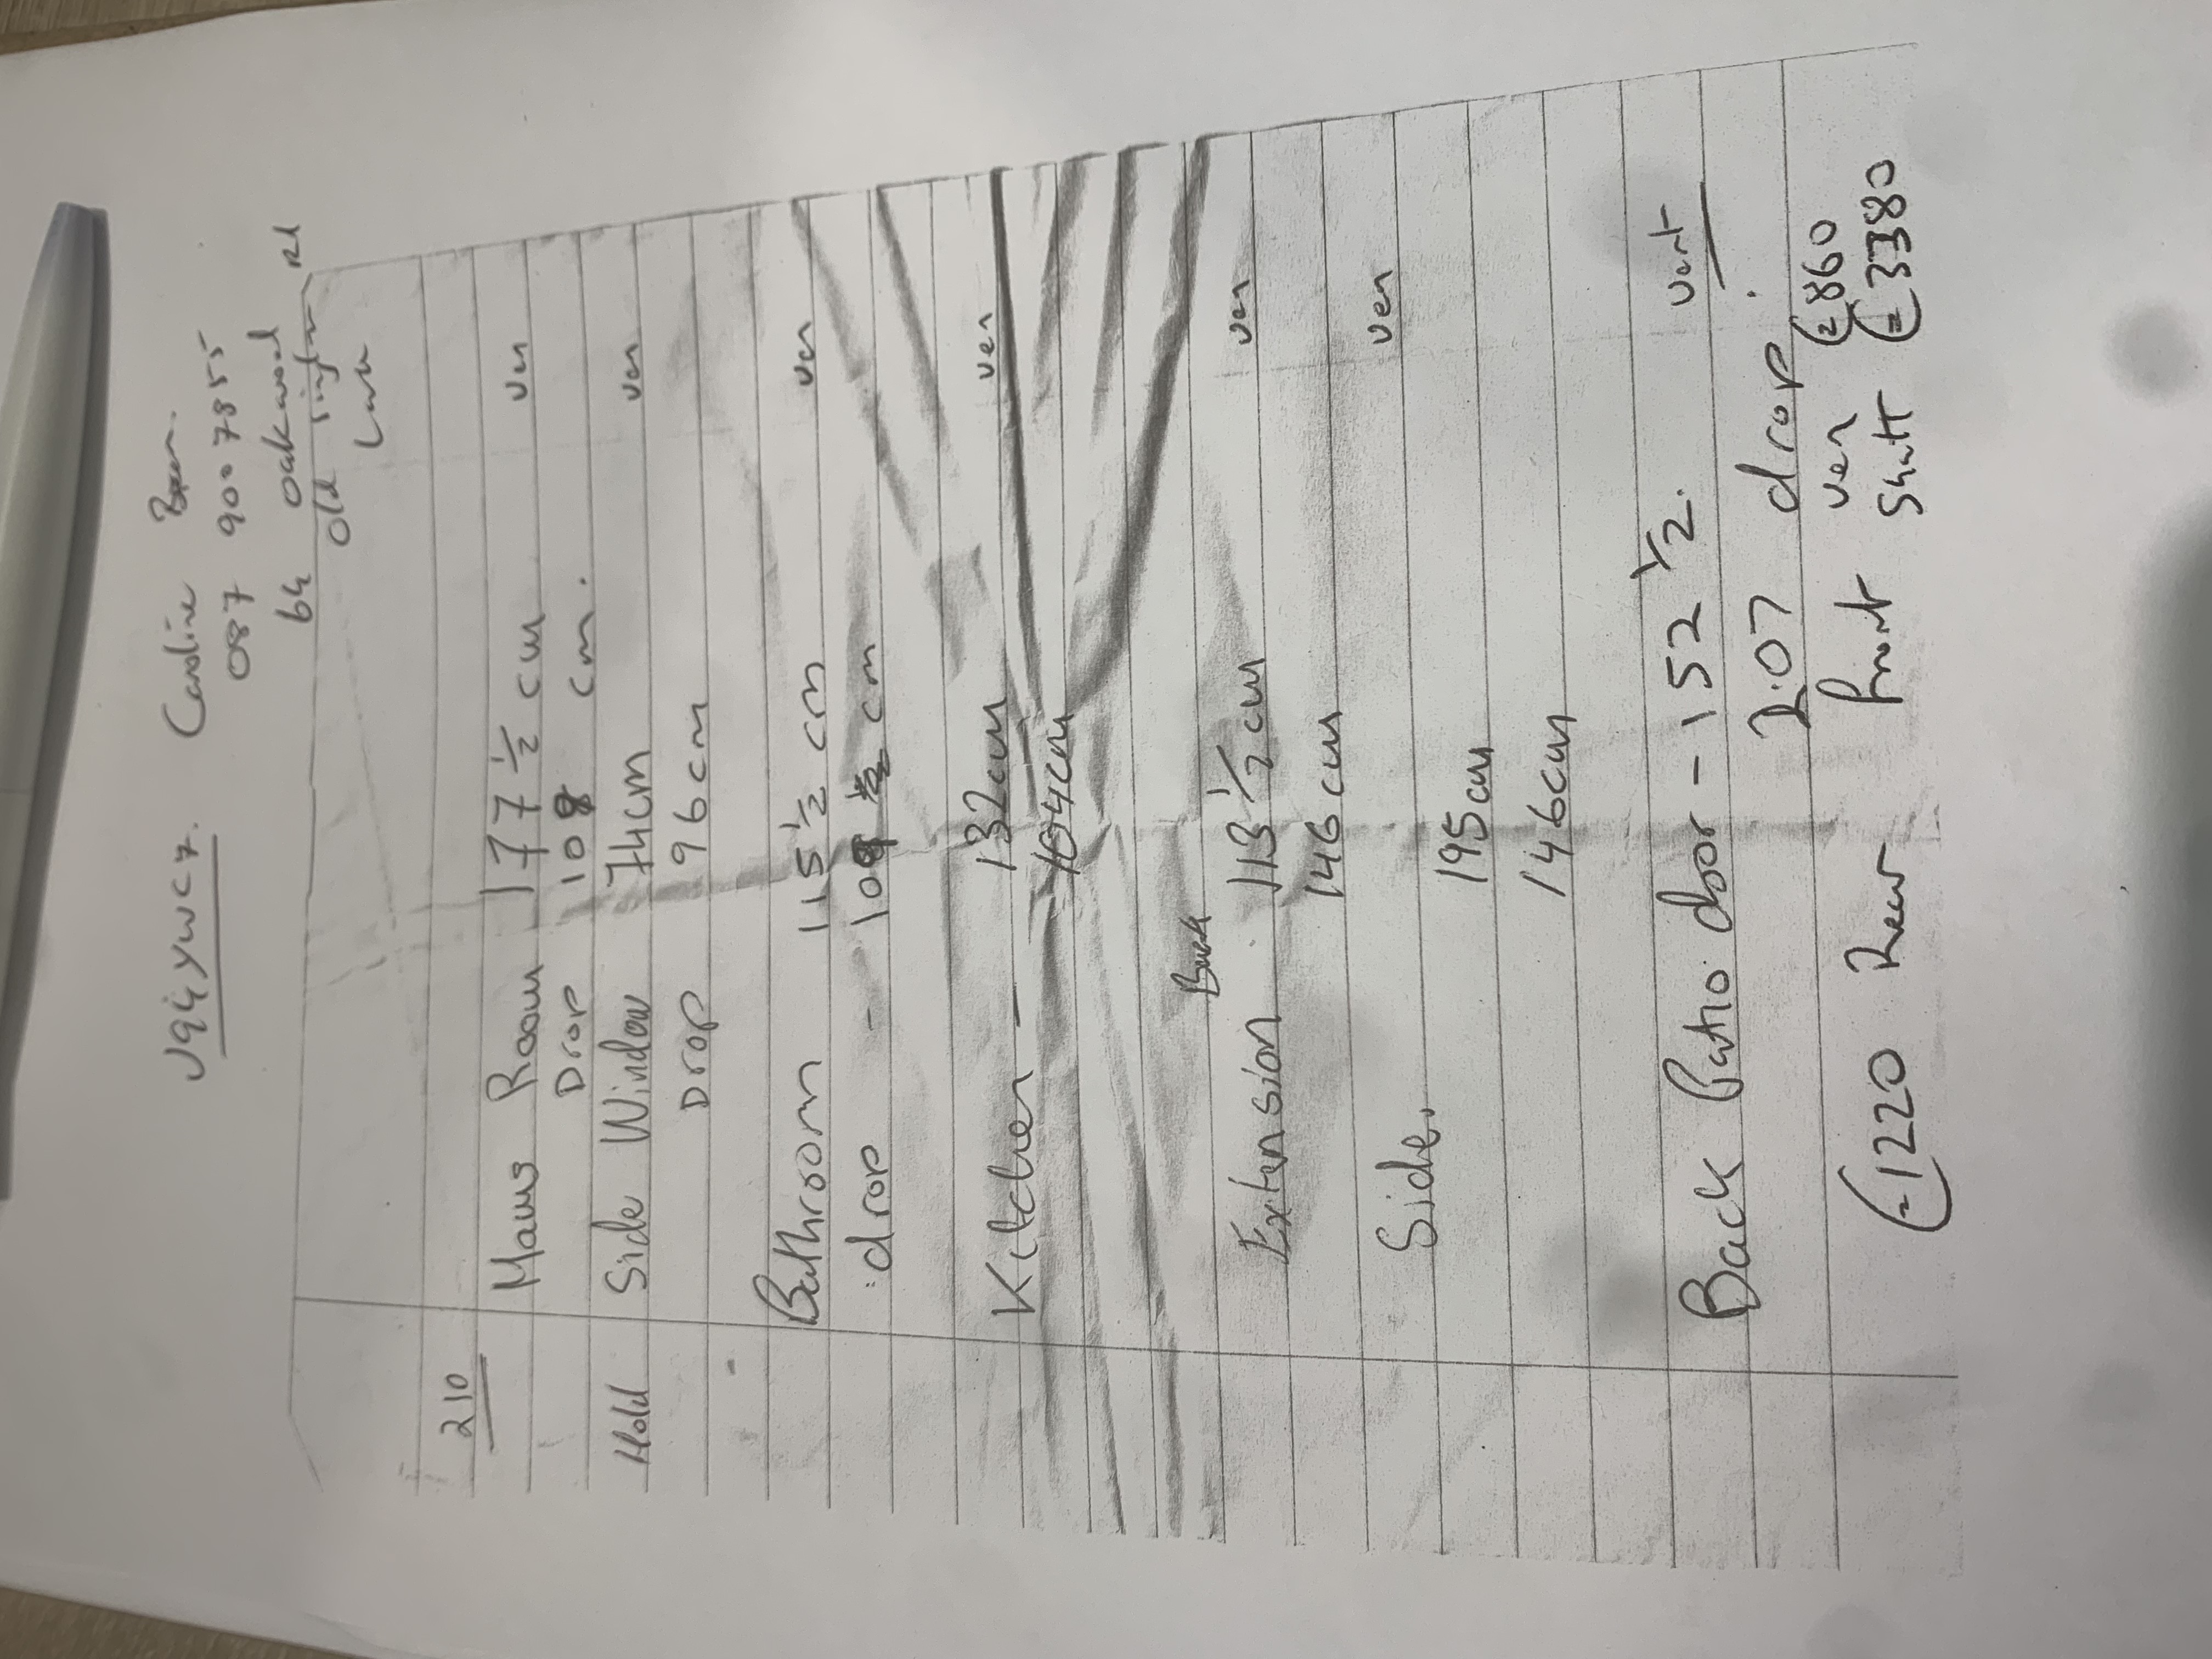 V94YWC7. Caroline
087 900 7855
64 Oakwood
Old
210
Maws Room 177 ½ cm ven
Drop 108 cm.
Hold Side Window 74cm ven
Drop 96cm
Bathroom 115 ½ cm ven
drop - 109 cm
Kitchen - 132cm ven
104cm
Back
Extension 113 ½ cm ven
146cm
Side. 195cm ven
146cm
Back Patio door - 152 ½. vert
2.07 drop.
Front ven €860
€1220 Rear Shutt €3380